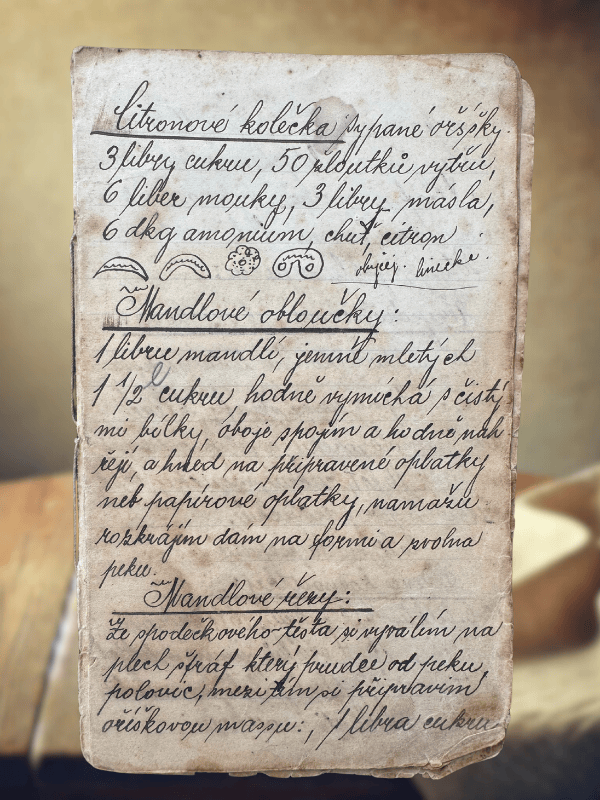 Citronové kolečka sypané oříšky.
3 libry cukru, 50 žloutků vytřu,
6 liber mouky, 3 libry másla,
6 dkg amonium, chuť, citron
obyčej. linecké.
Mandlové obloučky:
1 libru mandlí, jemně mletých
1 1/2 l cukru hodně vymíchá s čistý
mi bílky, oboje spojím a hodně nah
řeji, a hned na připravené oplatky
neb papírové oplatky, namažu
rozkrájím dám na formi a zvolna
peku.
Mandlové řezy:
Ze spodečkového těsta si vyválím na
plech štráf který prudce od peku,
polovic, mezi tím si připravim
oříškovou massu:, 1 libra cukru